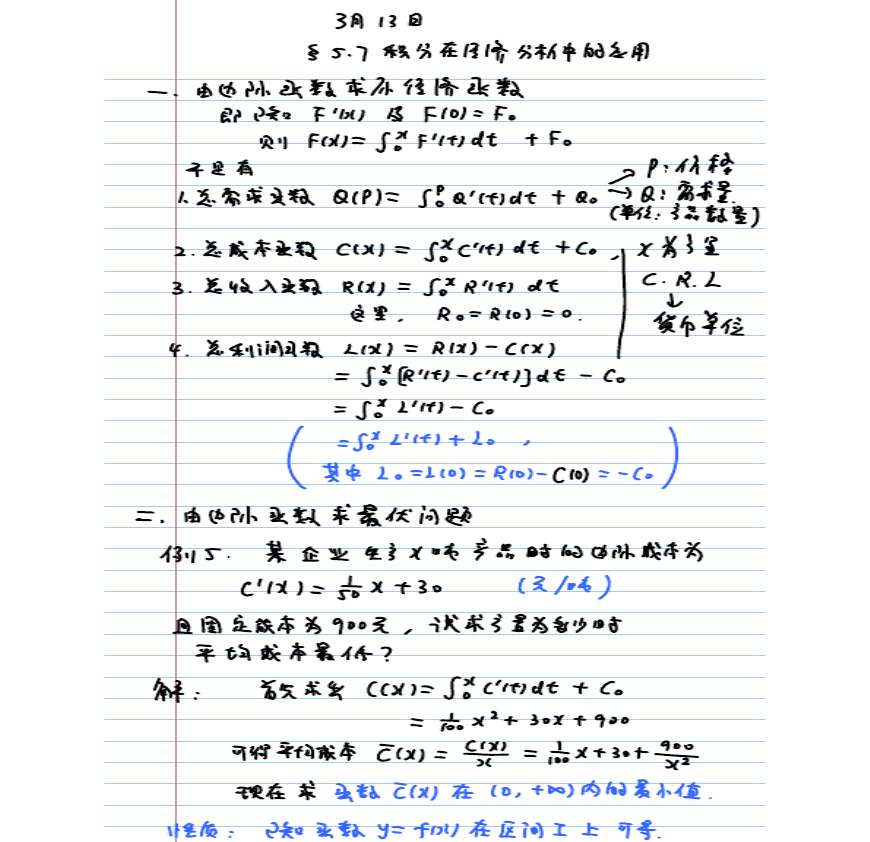 3月13日
§5.7 积分在经济分析中的应用
一. 由边际函数求原经济函数
即已知 F'(x) 及 F(0)=F₀
则 F(x)=∫₀ˣ F'(t)dt + F₀
于是有
1. 总需求函数 Q(P)= ∫₀ᴾ Q'(t)dt + Q₀ → P: 价格
→ Q: 需求量
(单位: 产品数量)
2. 总成本函数 C(x) = ∫₀ˣ C'(t) dt + C₀, x 为产量
3. 总收入函数 R(x) = ∫₀ˣ R'(t) dt C. R. L
这里, R₀=R(0)=0. ↓ 货币单位
4. 总利润函数 L(x) = R(x)-C(x)
= ∫₀ˣ [R'(t)-C'(t)]dt - C₀
= ∫₀ˣ L'(t) - C₀
(=∫₀ˣ L'(t) + L₀ ,
其中 L₀=L(0)=R(0)-C(0)=-C₀)
二. 由边际函数求最优问题
例5. 某企业生产x吨产品时的边际成本为
C'(x)= 1/50 x+30 (元/吨)
且固定成本为900元, 试求产量为多少时
平均成本最低?
解: 首先求出 C(x)=∫₀ˣ C'(t)dt + C₀
= 1/100 x²+30x+900
可得平均成本 C̅(x)= C(x)/x = 1/100 x+30+ 900/x²
现在求 函数 C̅(x) 在 (0, +∞)内的最小值.
性质: 已知函数 y=f(x) 在区间 I 上 可导.